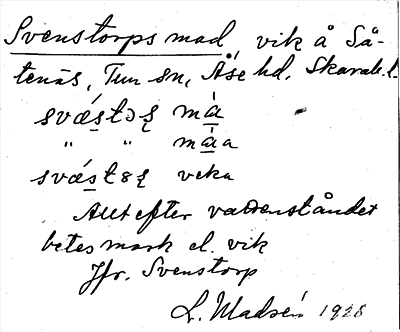 Svenstorps mad, vik å Så-
tenäs, Tun sn, Åse hd, Skarab. l.
svǽstɔʂ mȧ
" " mȧa
svǽst8ʂ veka
Allt efter vattenståndet
betesmark el. vik
Jfr. Svenstorp
L. Madsén 1928